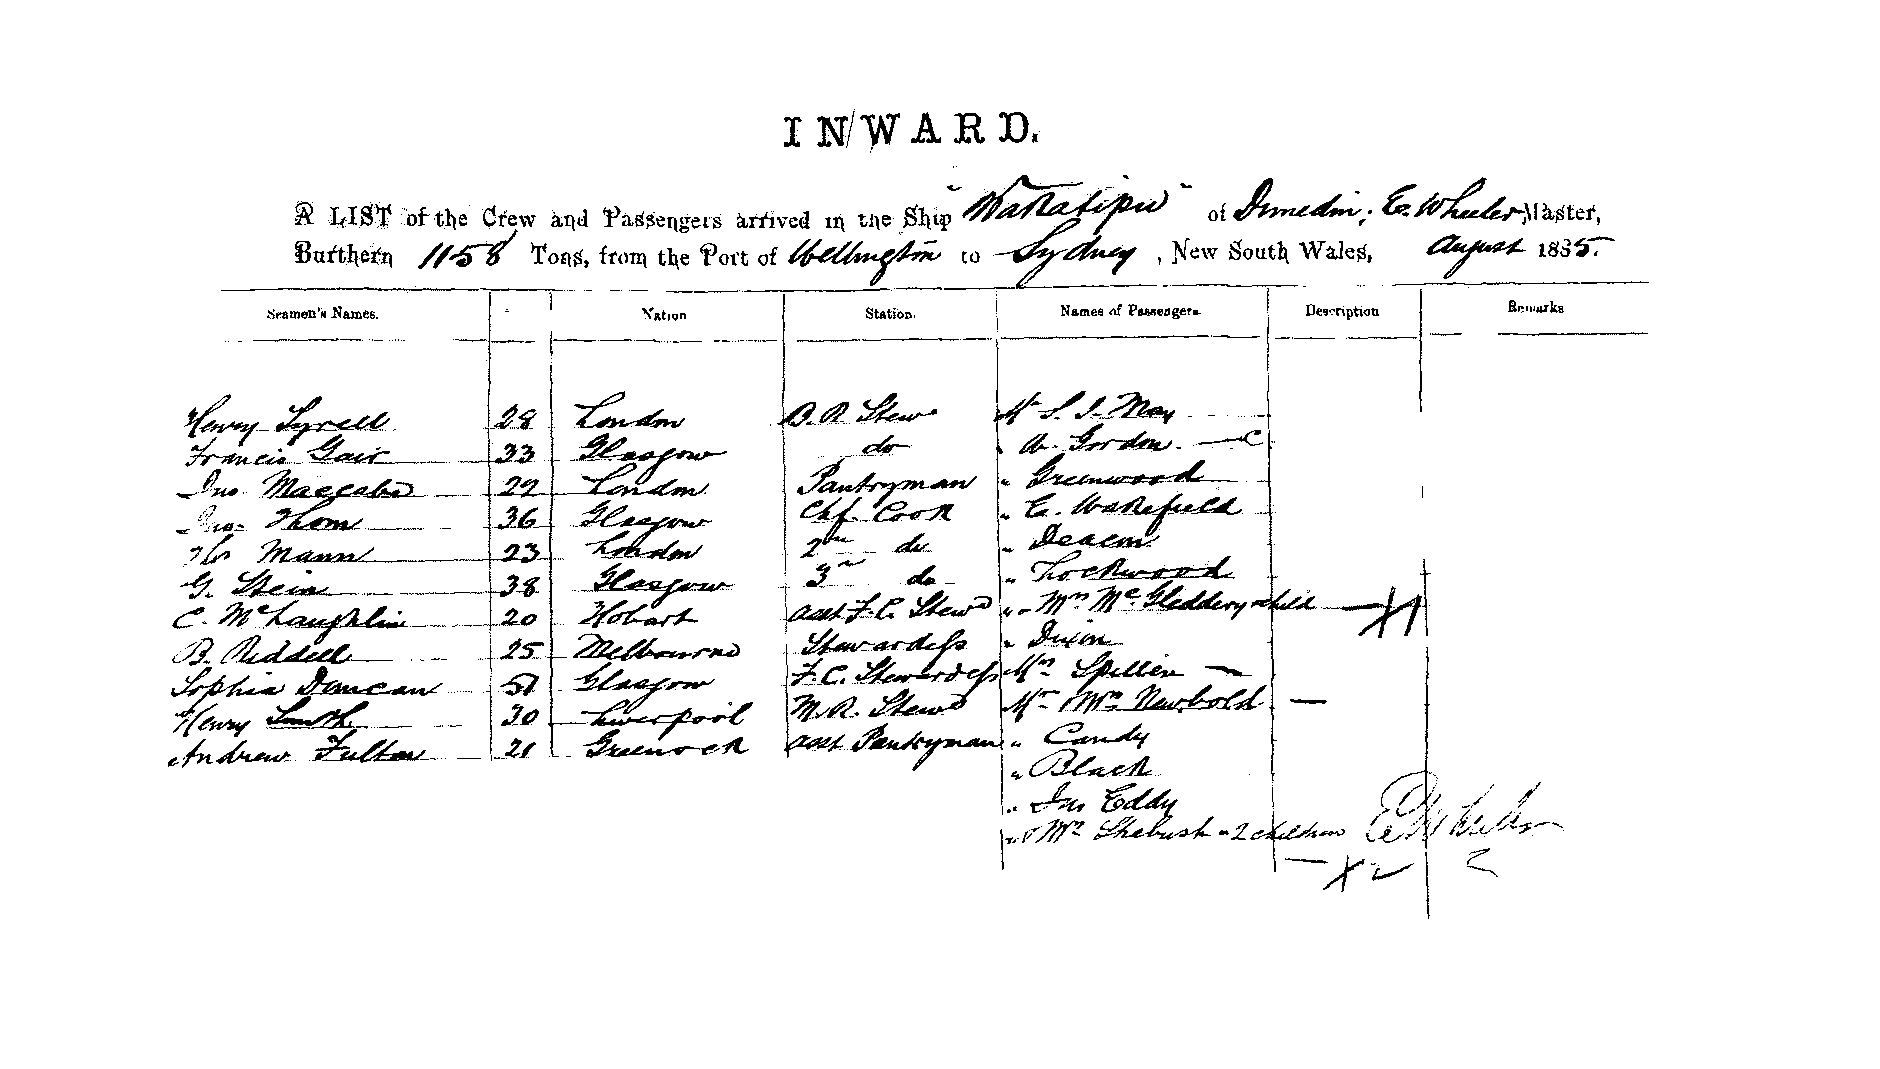 INWARD.
A LIST of the Crew and Passengers arrived in the Ship "Wakatipu" of Dunedin, E. Wheeler Master,
Burthern 1158 Tons, from the Port of Wellington to Sydney, New South Wales, August 1885.
Seamen's Names. Nation Station. Names of Passengers. Description Remarks
Henry Tyrell 28 London B.R. Stewd Mr S. I. May
Francis Gair 33 Glasgow do " A. Gordon C
Jno Maccabe 29 London Pantryman " Greenwood
Jno Thom 36 Glasgow Chf. Cook " E. Wakefield
Mann 23 London 2nd do " Deacon
G. Stein 38 Glasgow 3rd do " Lockwood
C. McLaughlin 20 Hobart asst F.C. Stewd " Mrs McGleddery child X1
B. Riddell 25 Melbourne Stewardess " Dixon
Sophia Duncan 51 Glasgow F.C. Stewardess Mrs Spillen
Henry Smith 30 Liverpool M.R. Stewd Mr Mrs Newbold
Andrew Fulton 21 Greenock asst Pantryman " Candy
" Black
" Jno Eddy
" Mrs Shebush 2 children E Wheeler
X2